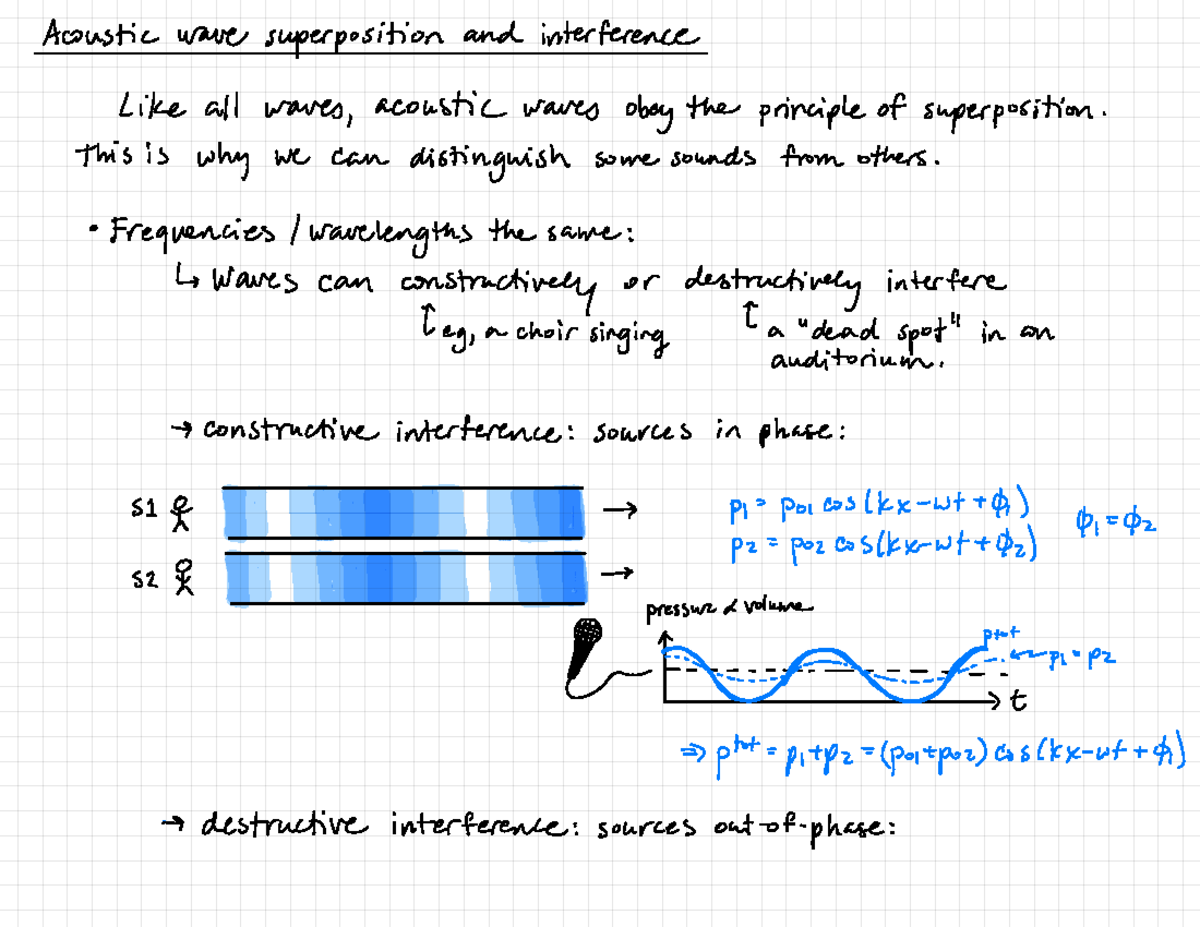 Acoustic wave superposition and interference
Like all waves, acoustic waves obey the principle of superposition.
This is why we can distinguish some sounds from others.
• Frequencies / wavelengths the same:
↳ Waves can constructively or destructively interfere
↑ eg, a choir singing
↑ a "dead spot" in an
auditorium.
→ constructive interference: sources in phase:
S1
p₁ = p₀₁ cos(kx-ωt+ϕ₁)
ϕ₁ = ϕ₂
S2
p₂ = p₀₂ cos(kx-ωt+ϕ₂)
pressure & volume
pᵗᵒᵗ
p₁ = p₂
t
⇒ pᵗᵒᵗ = p₁+p₂ = (p₀₁+p₀₂) cos(kx-ωt+ϕ₁)
→ destructive interference: sources out-of-phase: